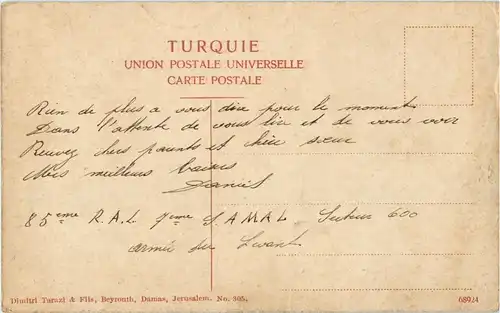 TURQUIE
UNION POSTALE UNIVERSELLE
CARTE POSTALE
Rien de plus a vous dire pour le moment.
Dans l'attente de vous lire et de vous voir
Recevez chers parents et chère sœur
Mes meilleurs baisers
Daniel
85ème R.A.L. 7ème S.A.M.A.L Secteur 600
armée du Levant
Dimitri Tarazi & Fils, Beyrouth, Damas, Jerusalem. No. 305.
68924